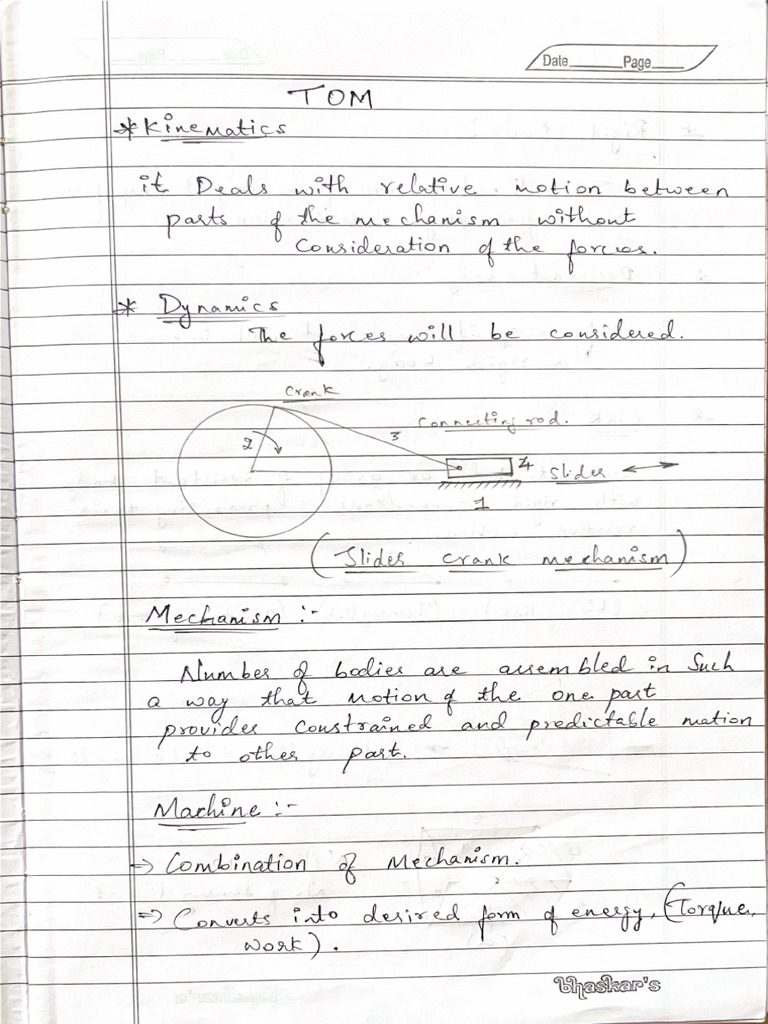 Date Page
TOM
* Kinematics
it Deals with relative motion between
parts of the mechanism without
Consideration of the forces.
* Dynamics
The forces will be considered.
Crank
Connecting rod.
2
3
4
Slider
1
(Slider crank mechanism)
Mechanism :-
Number of bodies are assembled in Such
a way that motion of the one part
provides constrained and predictable motion
to other part.
Machine :-
=> Combination of Mechanism.
=> Converts into desired form of energy, (Torque,
work).
bhaskar's